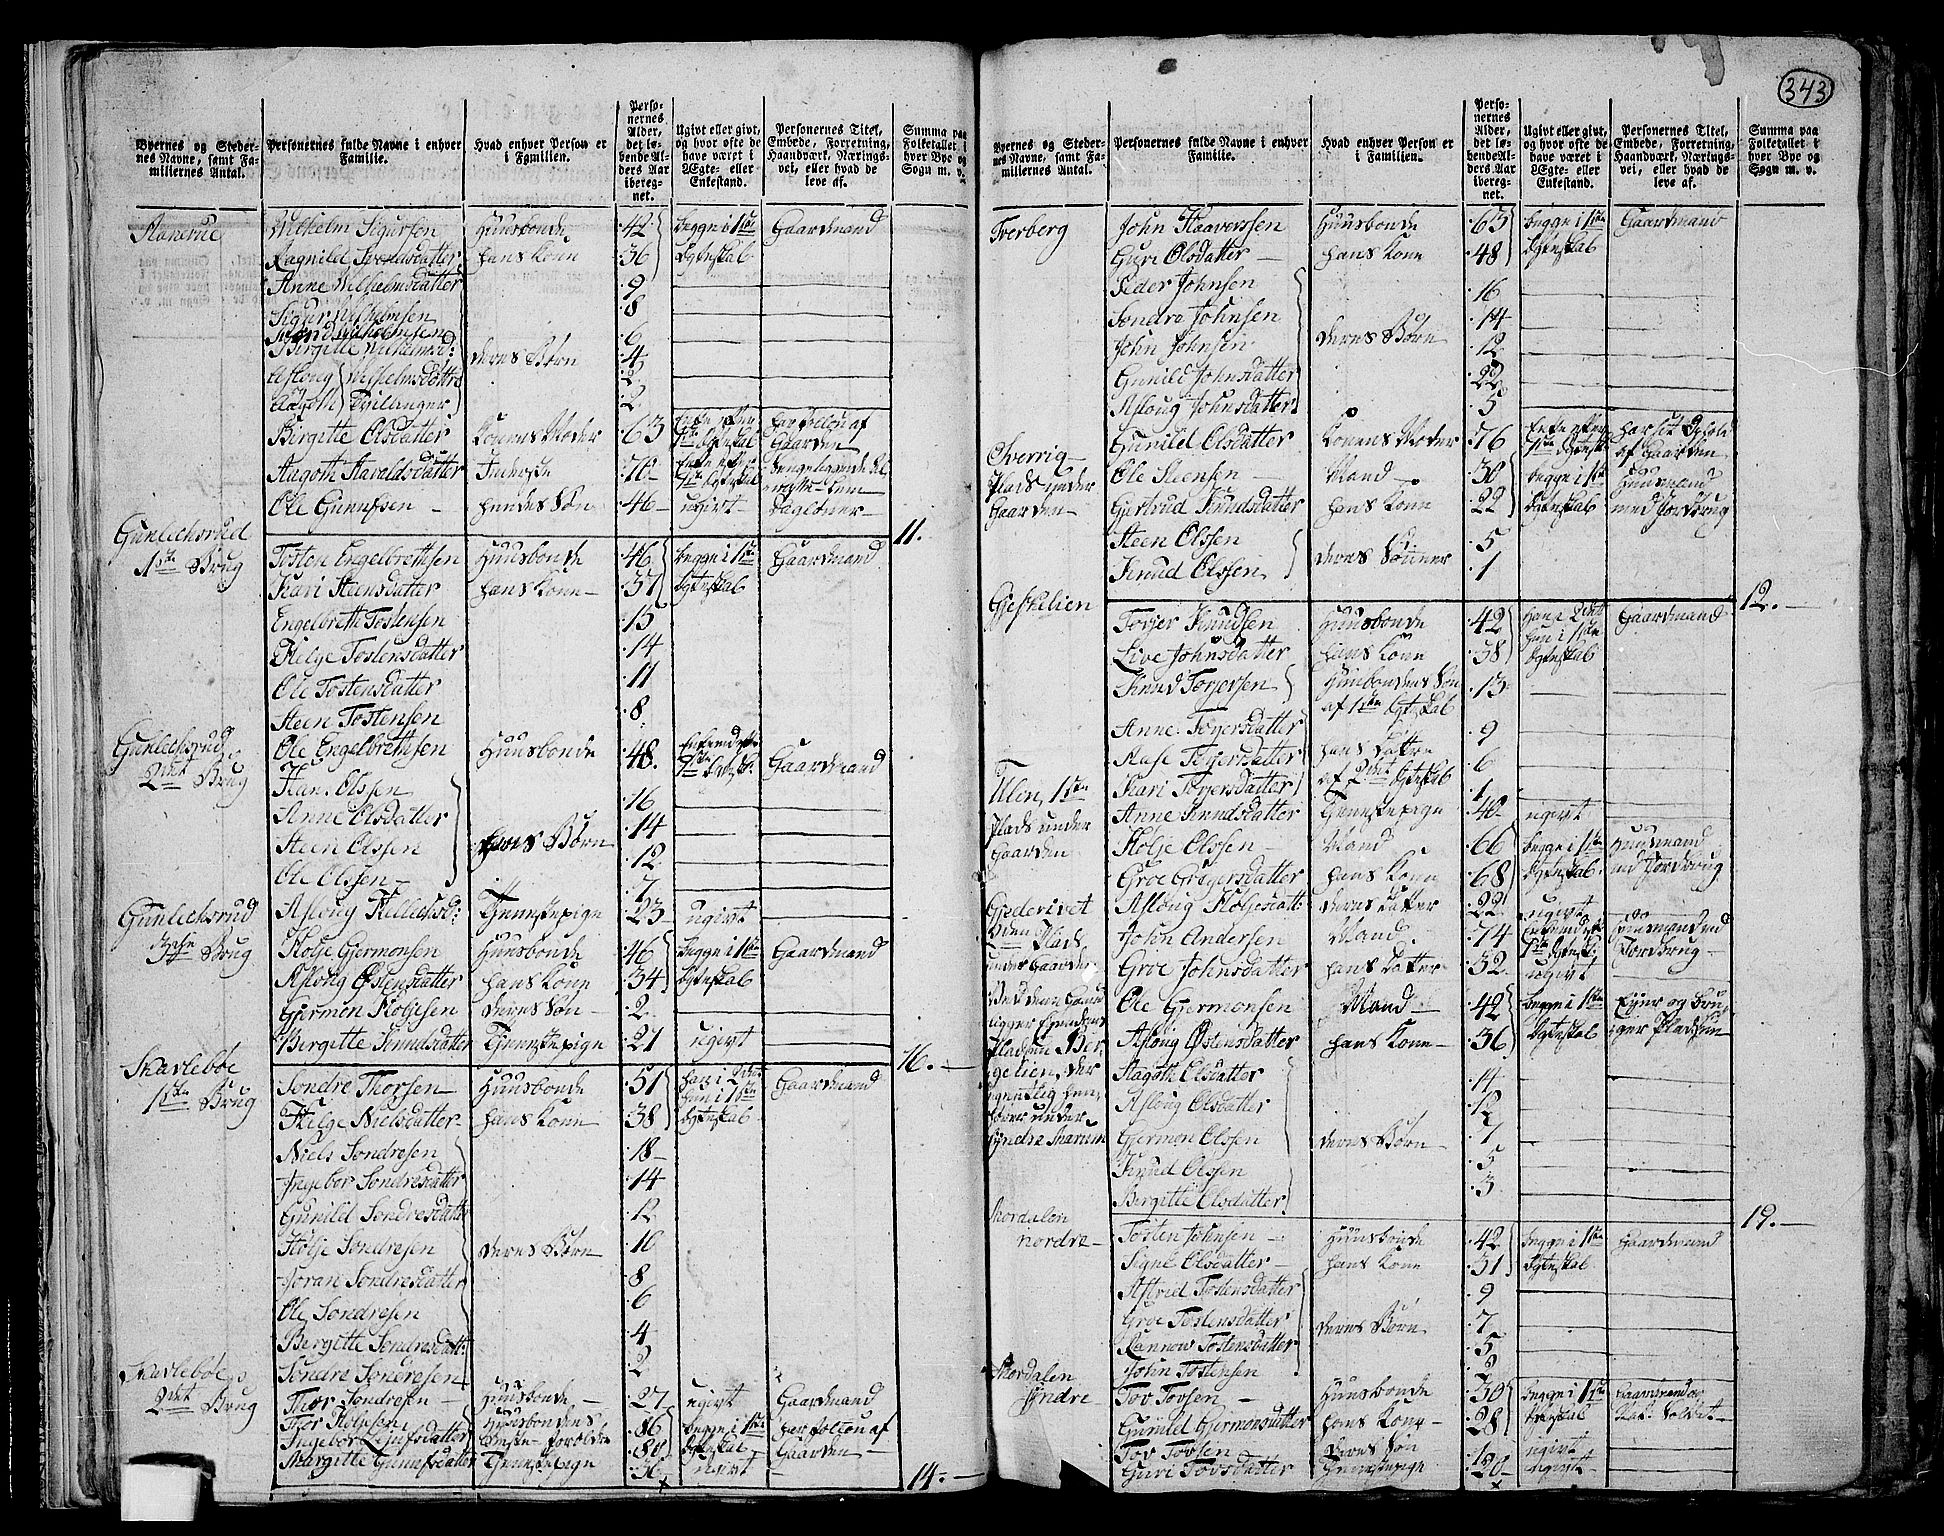 343
Byernes og Steder-
nes Navne, samt Fa-
miliernes Antal.
Personernes fulde Navne i enhver
Familie.
Hvad enhver Person er
i Familien.
Perso-
nernes
Alder,
det lø-
bende Al-
ders Aar
iberegnet.
Ugivt eller givt,
og hvor ofte de
have været i
Ægte- eller
Enkestand.
Personernes Titel,
Embede, Forretning,
Haandværk, Nærings-
vei, eller hvad de
leve af.
Summa paa
Folketallet i
hver Bye og
Sogn m. v.
Wilhelm Sigursen Huusbonde 42 begge i 1ste Gaardmand
Ragnild Svendsdatter hans Kone 36 Egteskab
Anne Wilhelmsdatter 9
Sigur Wilhelmsen 8
Svend Wilhelmsen 6
Birgitte Wilhelmsd: deres Børn 4
Asloug Wilhelmsdøttre 2
Aagoth Tvillinger 2
Birgitte Olsdatter Konens Moder 63 Enke efter 1ste Egteskab Gaarden
Aagoth Haraldsdatter Inderste 70 Enke efter 1ste Egteskab
Ole Gunufsen hendes Søn 46 ugivt Dagløner
11.
Gunlechsrud
1ste Brug
Tosten Engelbrethsen Huusbonde 46 begge i 1ste Gaardmand
Kari Steensdatter hans Kone 37 Egteskab
Engelbreth Tostensen 15
Helge Tostensdatter 14
Ole Tostensdatter 11
Steen Tostensen 8
Gunlechsrud
2det Brug
Ole Engelbrethsen Huusbonde 48 Gaardmand
Han. Olssen 16
Anne Olsdatter 14
Steen Olssen hans Børn 12
Ole Olssen 7
Asloug Kellechsd: Tjenestepige 23 ugivt
Gunlechsrud
3die Brug
Holje Gjermonsen Huusbonde 46 begge i 1ste Gaardmand
Asloug Østensdatter hans Kone 34 Egteskab
Gjermon Holjesen deres Søn 2
Birgitte Knudsdatter Tjenestepige 21 ugivt
16.
Skavlebøe
1ste Brug
Søndre Thorsen Huusbonde 51 han i 2det Gaardmand
Helge Nielsdatter hans Kone 38 hun i 1ste Egteskab
Niels Søndresen 18
Ingebor Søndresdatter 14
Gunild Søndresdatter 12
Holje Søndresen deres Børn 10
Joran Søndresdatter 8
Ole Søndresen 6
Bergitte Søndresdatt: 4
Søndre Søndresen 2
Skavlebøe
2det Brug
Thor Søndresen Huusbonde 27 ugivt Gaardmand
Thor Holjesen Huusbondens 86 begge i 1ste har Follou af
Ingebor Gunufsdatter Beste-Forældre 84 Egteskab Gaarden
Margitte Gunufsdatter Tjenestepige 30 ugivt
14.
Byernes og Steder-
nes Navne, samt Fa-
miliernes Antal.
Personernes fulde Navne i enhver
Familie.
Hvad enhver Person er
i Familien.
Perso-
nernes
Alder,
det lø-
bende Al-
ders Aar
iberegnet.
Ugivt eller givt,
og hvor ofte de
have været i
Ægte- eller
Enkestand.
Personernes Titel,
Embede, Forretning,
Haandværk, Nærings-
vei, eller hvad de
leve af.
Summa paa
Folketallet i
hver Bye og
Sogn m. v.
Tverberg
John Haaverssen Huusbonde 63 begge i 1ste Gaardmand
Guri Olsdatter hans Kone 48 Egteskab
Peder Johnsen 16
Søndre Johnsen 14
John Johnsen deres Børn 12
Gunild Johnsdatter 22
Asloug Johnsdatter 5
Gunild Olsdatter Konens Moder 76 Enke efter 1ste Egtesk: har sit Ophold af Gaarden
Sverrig
Plads under
Gaarden
Ole Steensen Mand 30 begge i 1ste Huusmand
Gjertrud Knudsdatter hans Kone 22 Egteskab med Jordbrug
Steen Olssen 5
Knud Olssen deres Sønner 1
12.
Gjeskelien
Torjer Knudsen Huusbonde 42 han i 2det Gaardmand
Live Johnsdatter hans Kone 38 hun i 1ste Egteskab
Knud Torjersen Huusbondens Søn 13
af 1ste Egteskab
Anne Torjersdatter 9
Aase Torjersdatter hans Døttre 6
Kari Torjersdatter af 2det Egteskab 1
Anne Knudsdatter Tjenestepige 40 ugivt
Ulien, 1ste
Plads under
Gaarden
Holje Olssen Mand 66 begge i 1ste Huusmand
Groe Gregersdatter hans Kone 68 Egteskab ud Jordbrug
Asloug Holjesdatt: deres Datter 22 ugivt
Gjederivet
2den Plads
under Gaarden
John Andersen Mand 74 Huusmand ud
Groe Johnsdatter hans Datter 32 ugivt Jordbrug
Ved denne Gaard
ligger Ejendoms
Pladsen Ber-
gelien, der
egentlig hen-
hører under
Syndre Skarum
Ole Gjermonsen Mand 42 begge i 1ste Ejer og Bru-
Asloug Østensdatter hans Kone 36 Egteskab ger Pladsen
Aagoth Olsdatter 14
Asloug Olsdatter 12
Gjermon Olssen deres Børn 7
Knud Olssen 5
Bergitte Olsdatter 3
19.
Skordalen
nordre
Tosten Johnsen Huusbonde 42 begge i 1ste Gaardmand
Signe Olsdatter hans Kone 31 Egteskab
Astrid Tostensdatter 9
Groe Tostensdatter deres Børn 7
Rannow Tostensdatter 5
John Tostensen 2
Skordalen
syndre
Tov Tovsen Huusbonde 30 begge i 1ste
Gunild Gjermonsdatter hans Kone 28 Egteskab
Tov Tovsen deres Søn 1 ugivt
Guri Tovsdatter Tjenestepige 20 ugivt